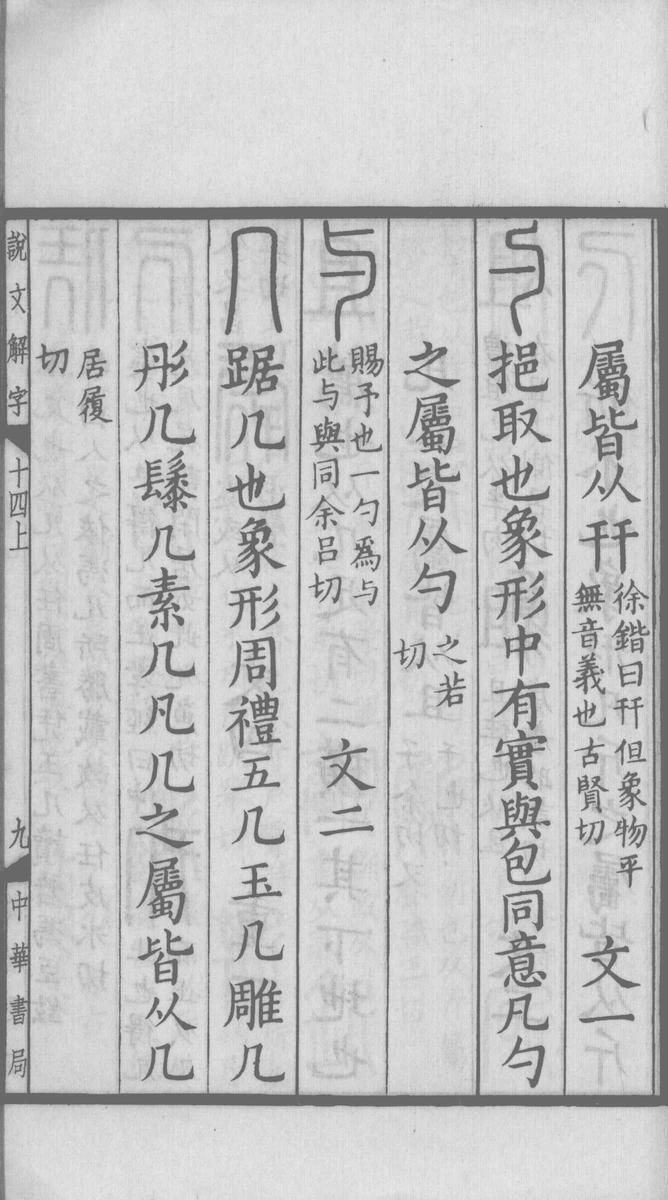 屬皆从幵徐鍇曰幵但象物平
無音義也古賢切文一
勺挹取也象形中有實與包同意凡勺
之屬皆从勺之若
切
与賜予也一勺爲与
此与與同余呂切文二
几踞几也象形周禮五几玉几雕几
彤几䰍几素几凡几之屬皆从几
居履
切
說文解字 十四上 九 中華書局